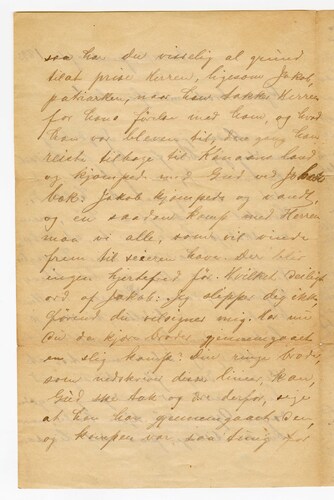 saa har du visselig al grund
til at prise Herren, ligesom Jakob,
patriarken, naar han takker Herren
for hans førlse med ham, og hvad
han var bleven til, den gang han
reiste tilbage til Kanaans land
og kjæmpede med Gud ved Jabok
bæk: Jakob kjæmpede og vandt,
og en saadan Kamp med Herren
maa vi alle, som vil vinde
frem til seieren have. Der blir
ingen hjertefred før. Hvilket
ord af Jakob: Jeg slipper dig ikke
førend du velsigner mig. Har nu
Du da kjære broder gjennemgaaet
en slig kamp? Din ringe broder,
som nedskriver disse linier, kan,
Gud ske tak og ære derfor, sige
at han har gjennemgaaet den,
og kampen var saa tung for